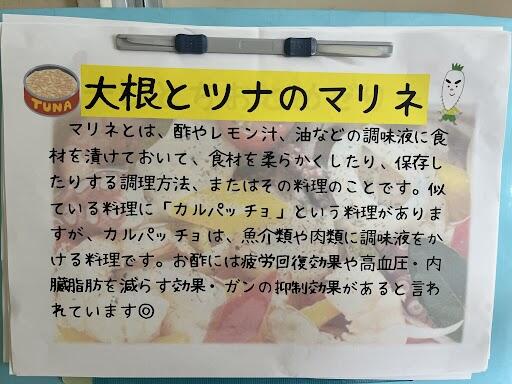 TUNA
大根とツナのマリネ
マリネとは、酢やレモン汁、油などの調味液に食
材を漬けておいて、食材を柔らかくしたり、保存し
たりする調理方法、またはその料理のことです。似
ている料理に「カルパッチョ」という料理がありま
すが、カルパッチョは、魚介類や肉類に調味液をか
ける料理です。お酢には疲労回復効果や高血圧・内
臓脂肪を減らす効果・ガンの抑制効果があると言わ
れています◎